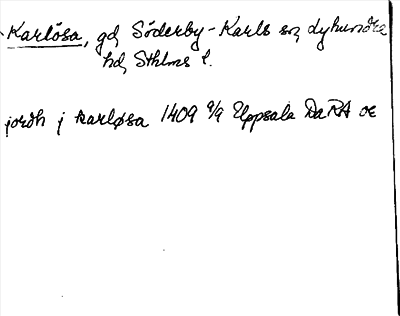 Karlösa, gd, Söderby-Karls sn, Lyhundra
hd, Sthlms l.
jordh j karløsa 1409 9/9 Uppsala DaRA or